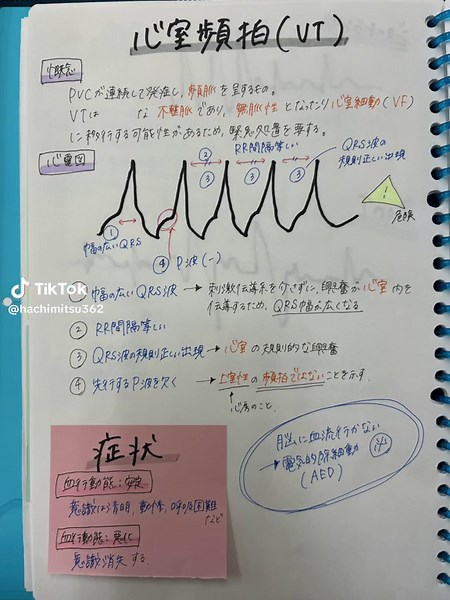 心室頻拍(VT)
概念
PVCが連続して発生し、頻脈を呈するもの。
VTは な 不整脈であり、無脈性となったり心室細動(VF)
に移行する可能性があるため、緊急処置を要する。
心電図
② RR間隔等しい
QRS波の
規則正しい出現
③ ③ ③
①
幅の広いQRS
④ P波(-)
!
危険
TikTok
@hachimitsu362
① 幅の広いQRS波 → 刺激伝導系を介さずに、興奮が心室内を
伝導するため、QRS幅が広くなる
② RR間隔等しい
③ QRS波の規則正しい出現 → 心室の規則的な興奮
④ 先行するP波を欠く → 上室性の頻拍ではないことを示す.
↑
心房のこと.
脳に血流行かない
→電気的除細動
(AED)
症状
血行動態:安定
意識は清明、動悸、呼吸困難
など
血行動態:悪化
意識消失する.